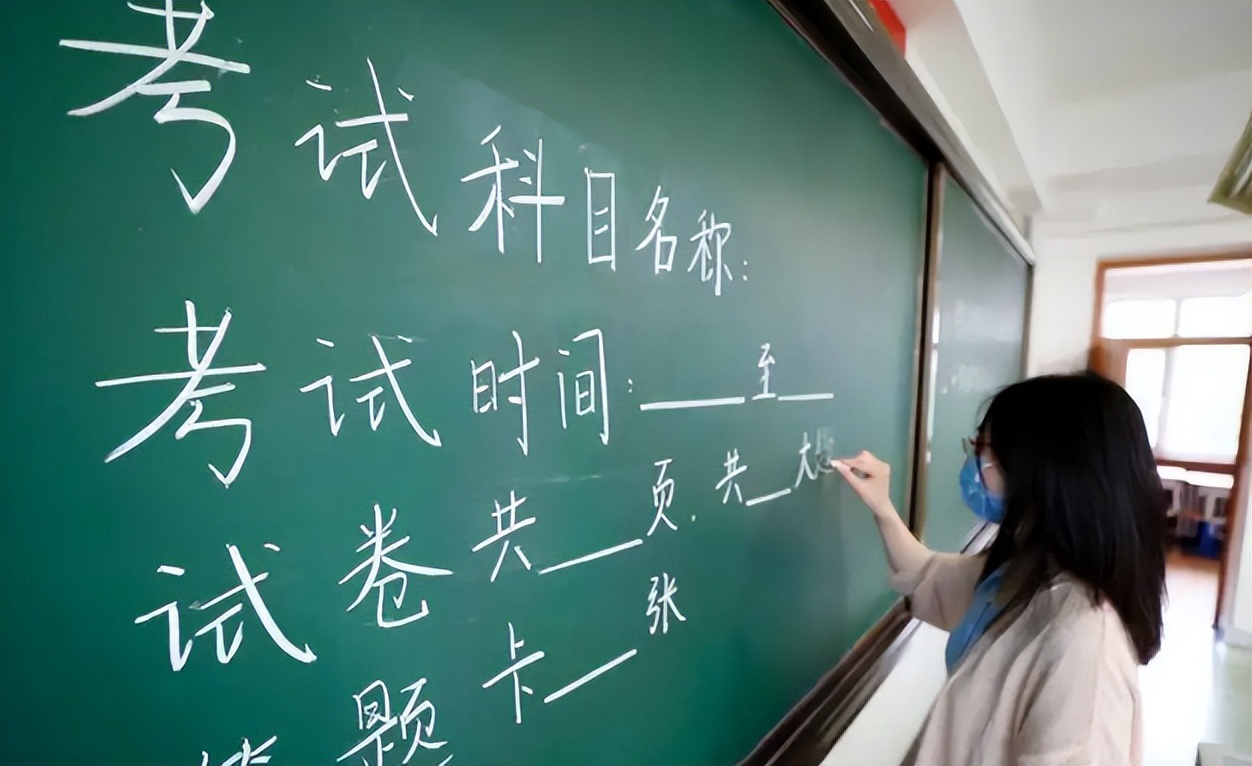 考试科目名称:
考试时间:____至____
试卷共____页.共____大题
答题卡____张